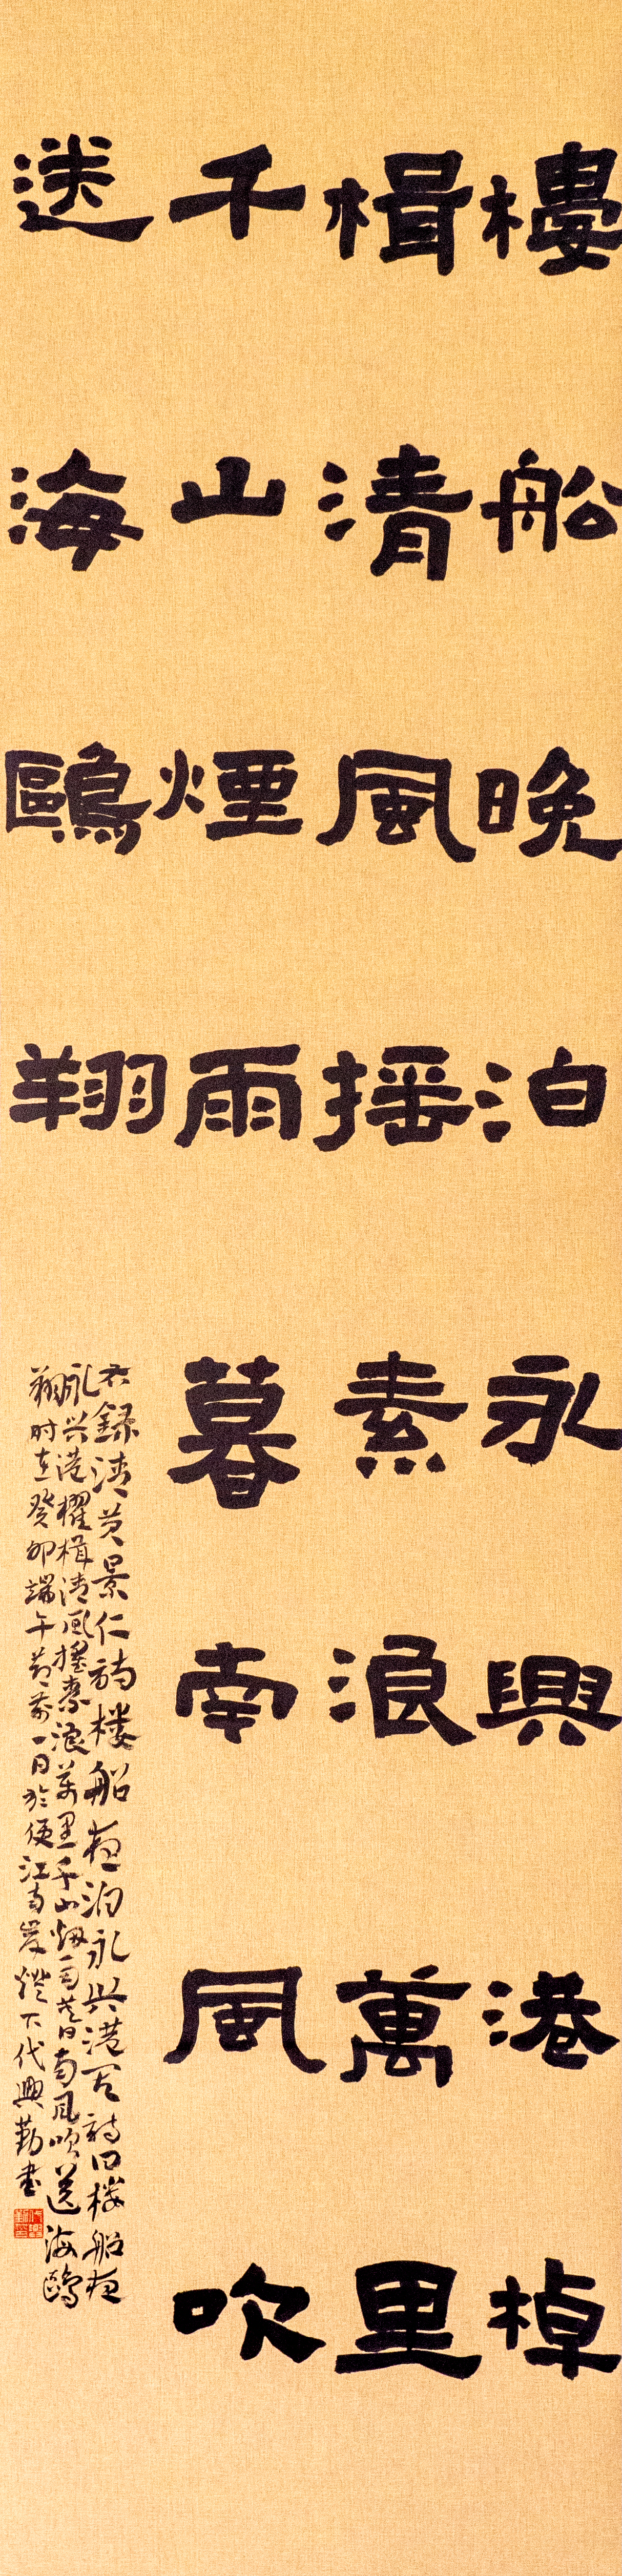 樓船晚泊永興港棹
楫清風摇素浪萬里
千山煙雨暮南風吹
送海鷗翔
右録清黄景仁詩楼船夜泊永兴港其詩曰楼船夜
永兴港櫂楫清風摇素浪万里千山烟雨暮日南風吹送海鷗
翔时在癸卯端午前一日於便江南岸燈下代興勤書